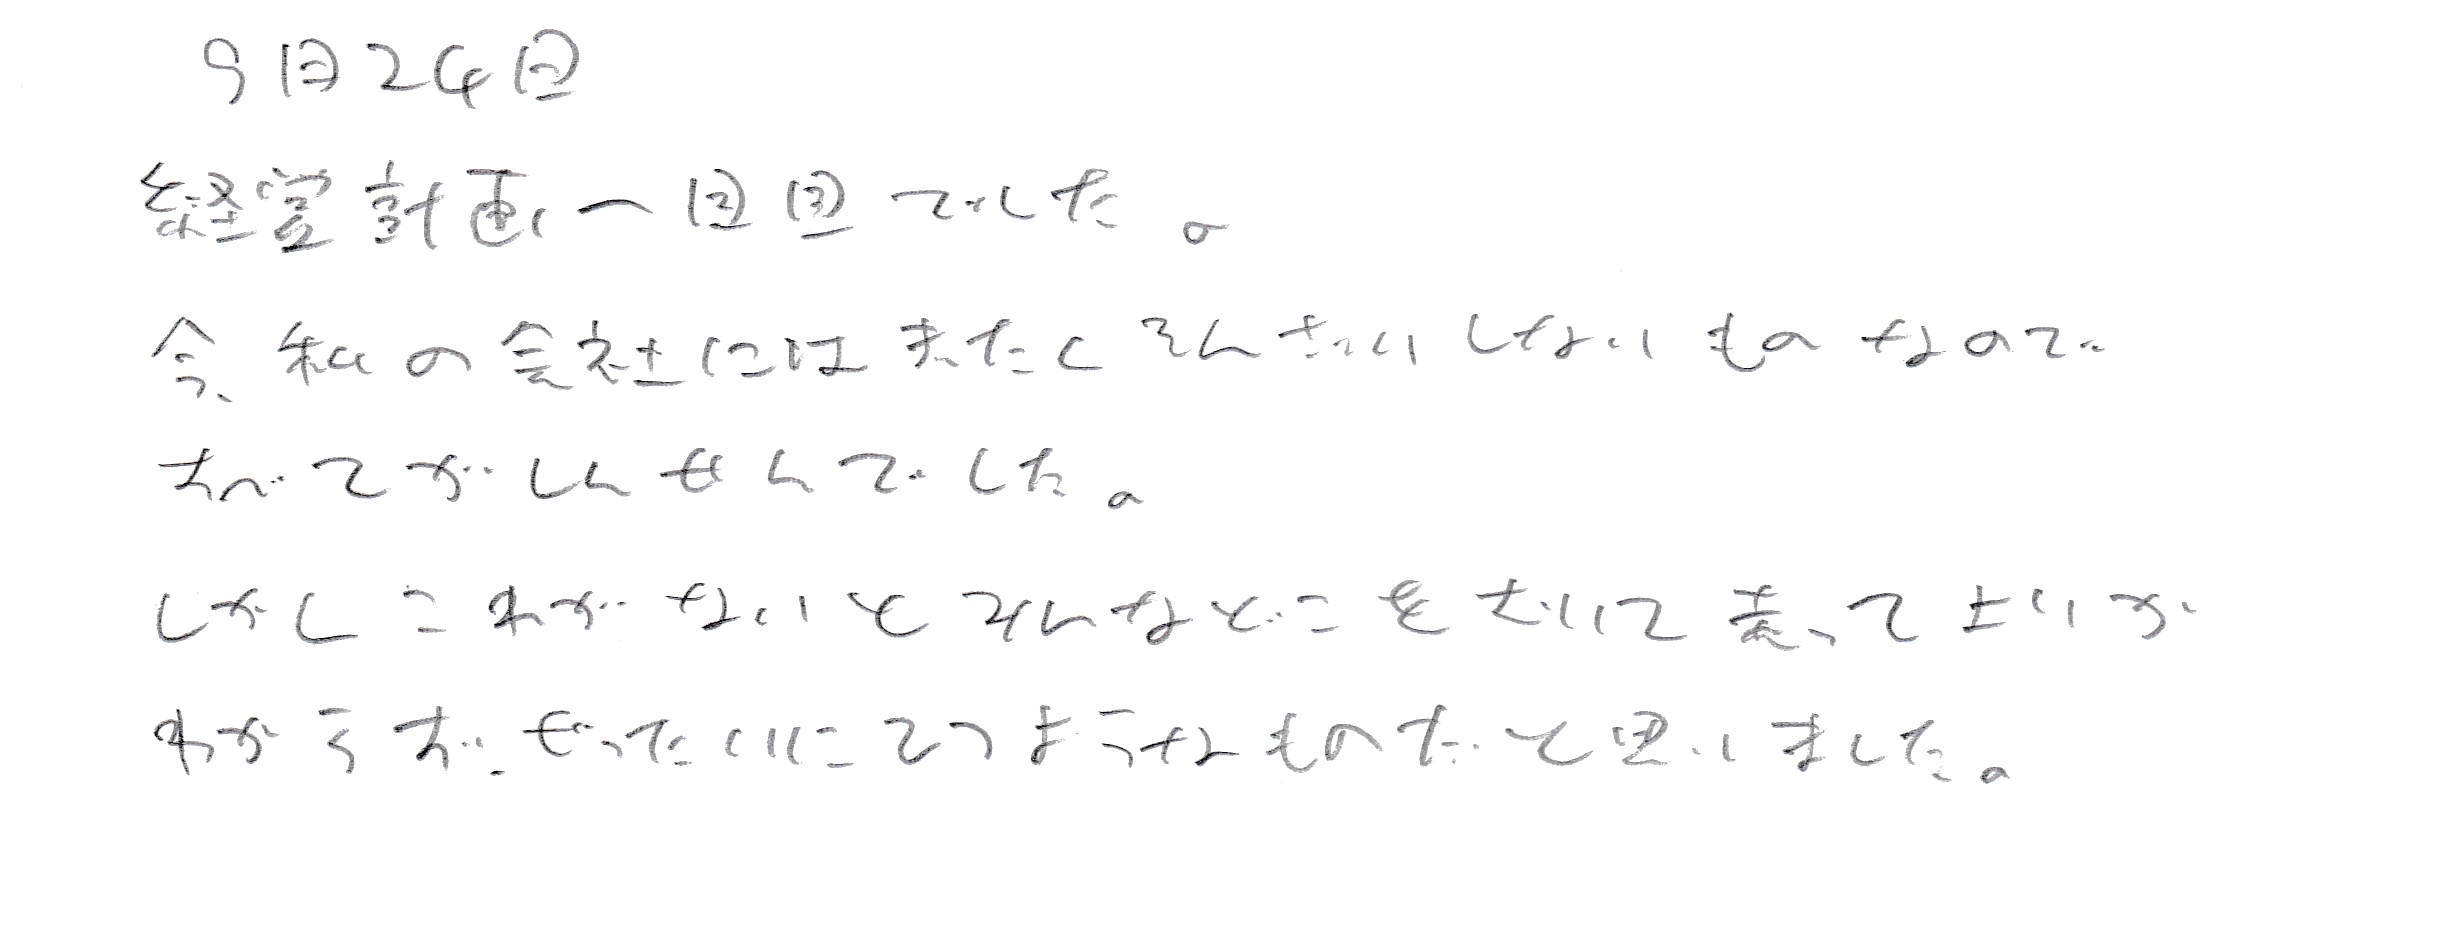 9月24日
経営計画一回目でした。
今、私の会社にはまたくそんざいしないものなので
すべてがしんせんでした。
しかしこれがないとみんなどこをむいて走ってよいか
わからずぜったいにひつようなものだと思いました。